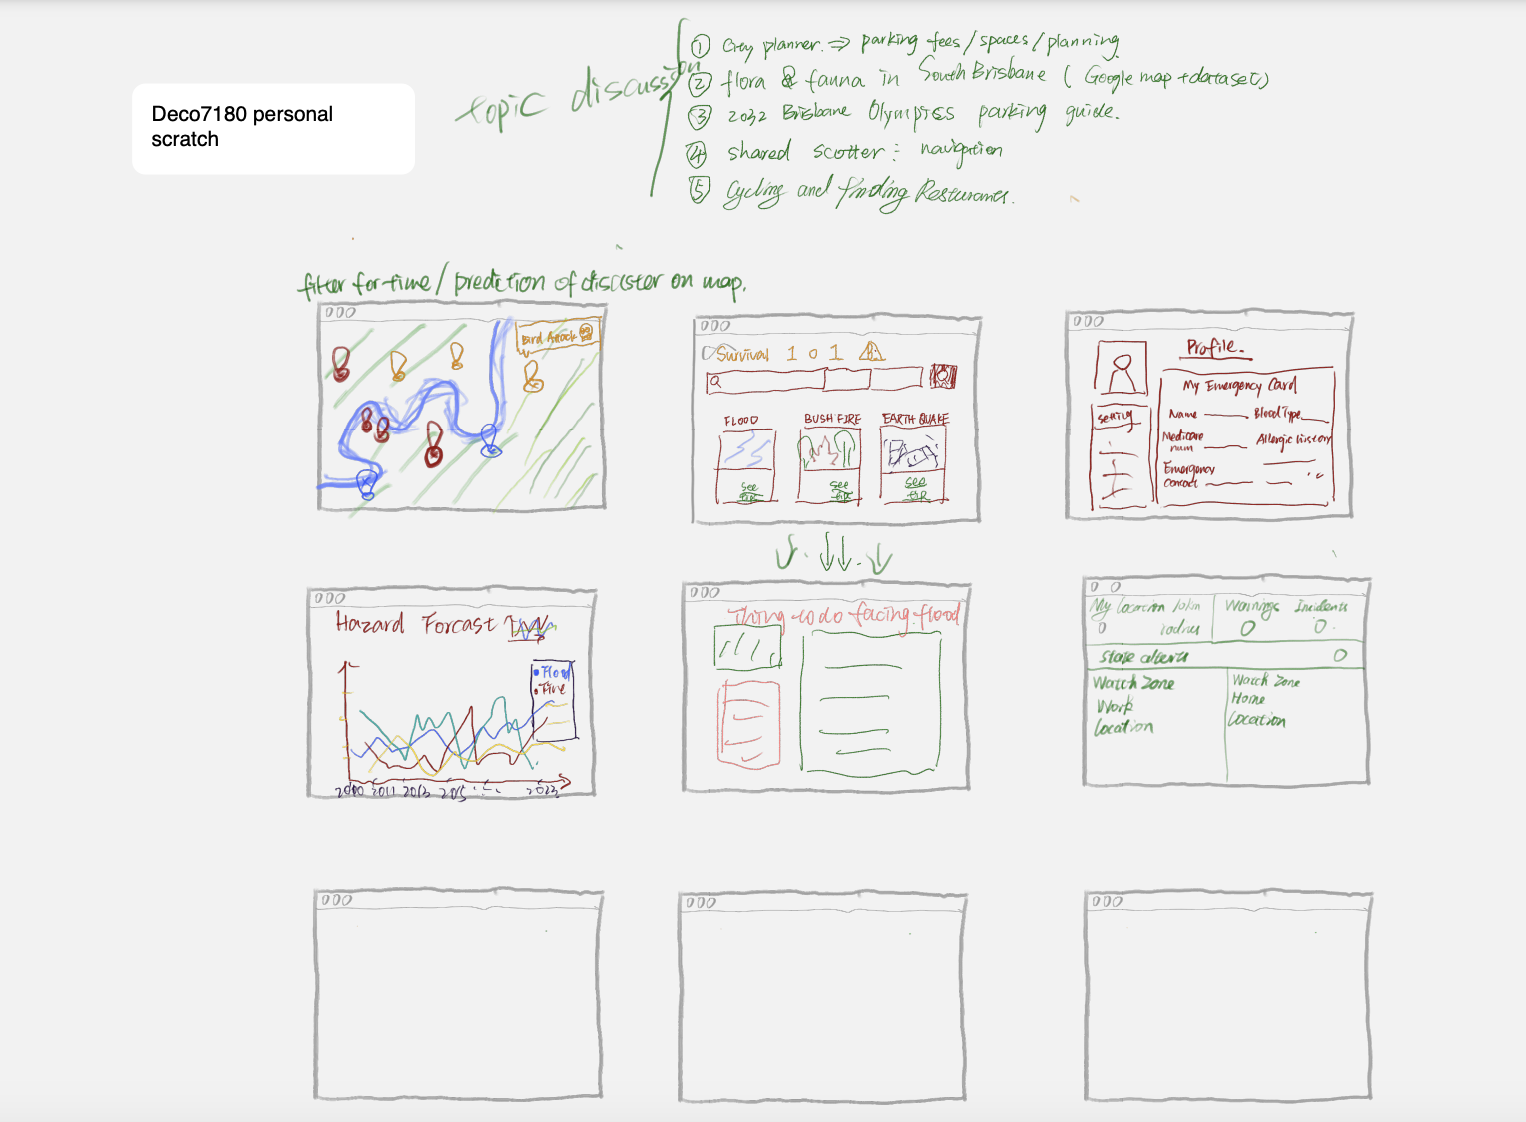 Deco7180 personal
scratch
topic discussion
① City planner. ⇒ parking fees/spaces/planning
② flora & fauna in South Brisbane (Google map + dataset)
③ 2032 Brisbane Olympics parking guide.
④ shared scotter : navigation
⑤ Cycling and finding Resturants.
filter for time / prediction of disaster on map.
Bird Attack
Survival 101
FLOOD
BUSH FIRE
EARTH QUAKE
see
tip
see
tip
see
tip
Profile.
setting
My Emergency Card
Name
Blood Type
Medicare
num
Allergic history
Emergency
Contact
Hazard Forcast
Flood
Fire
2000 2011 2013 2015 ... 2023
Thing to do facing flood
My location
radius
0
Warnings
0
Incidents
0
State alerts
0
Watch Zone
Work
Location
Watch Zone
Home
Location